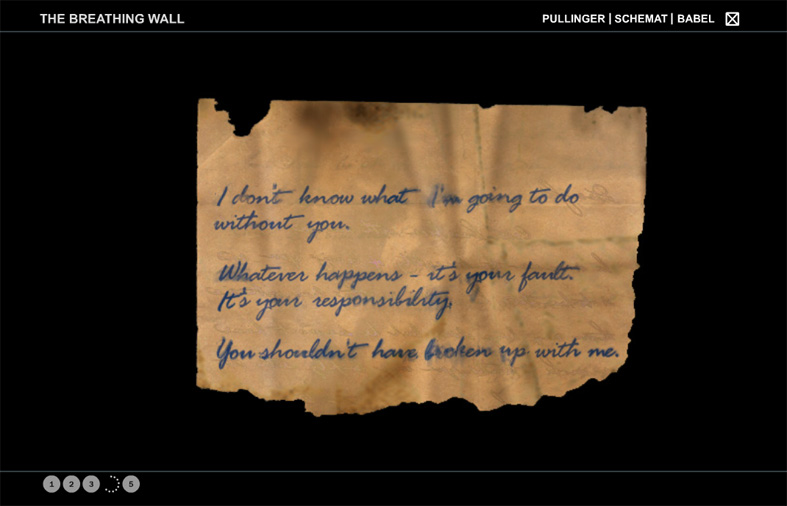 THE BREATHING WALL
PULLINGER | SCHEMAT | BABEL
I don't know what I'm going to do
without you.
Whatever happens - it's your fault.
It's your responsibility.
You shouldn't have broken up with me.
1 2 3 5